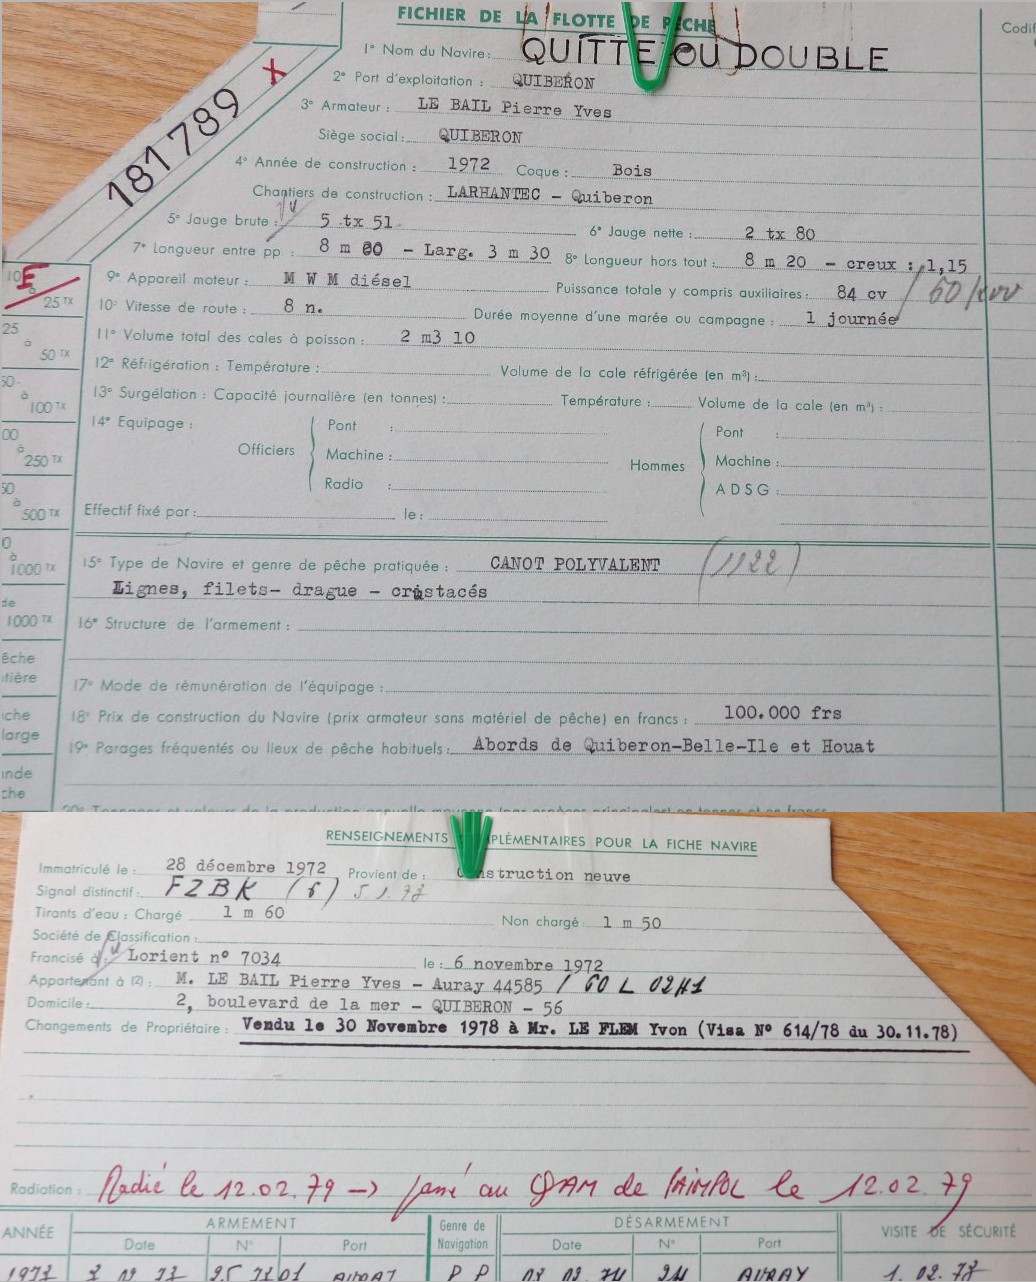 FICHIER DE LA FLOTTE DE PÊCHE
Codif
1° Nom du Navire: QUITTE OU DOUBLE
2° Port d'exploitation : QUIBERON
181789 X
3° Armateur : LE BAIL Pierre Yves
Siège social: QUIBERON
4° Année de construction : 1972 Coque : Bois
Chantiers de construction : LARHANTEC - Quiberon
5° Jauge brute : 5 tx 51 6° Jauge nette : 2 tx 80
7° Longueur entre pp : 8 m 00 - Larg. 3 m 30 8° Longueur hors tout : 8 m 20 - creux : 1,15
9° Appareil moteur : M W M diésel Puissance totale y compris auxiliaires : 84 cv / 60
10° Vitesse de route : 8 n. Durée moyenne d'une marée ou campagne : 1 journée
11° Volume total des cales à poisson : 2 m3 10
12° Réfrigération : Température : Volume de la cale réfrigérée (en m³) :
13° Surgélation : Capacité journalière (en tonnes) : Température : Volume de la cale (en m³) :
14° Equipage : Officiers Pont : Machine : Radio : Hommes Pont : Machine : A D S G :
Effectif fixé par : le :
15° Type de Navire et genre de pêche pratiquée : CANOT POLYVALENT (1122)
Lignes, filets- drague - crustacés
16° Structure de l'armement :
17° Mode de rémunération de l'équipage :
18° Prix de construction du Navire (prix armateur sans matériel de pêche) en francs : 100.000 frs
19° Parages fréquentés ou lieux de pêche habituels : Abords de Quiberon-Belle-Ile et Houat
10
à
25 TX
25
à
50 TX
50
à
100 TX
00
à
250 TX
50
à
500 TX
0
à
1000 TX
de
1000 TX
êche
tière
che
large
nde
che
RENSEIGNEMENTS PLÉMENTAIRES POUR LA FICHE NAVIRE
Immatriculé le : 28 décembre 1972 Provient de : Construction neuve
Signal distinctif : FZBK (6)
Tirants d'eau : Chargé 1 m 60 Non chargé : 1 m 50
Société de Classification :
Francisé à : Lorient n° 7034 le : 6 novembre 1972
Appartenant à (2) : M. LE BAIL Pierre Yves - Auray 44585 / 60 L 02H1
Domicile : 2, boulevard de la mer - QUIBERON - 56
Changements de Propriétaire : Vendu le 30 Novembre 1978 à Mr. LE FLEM Yvon (Visa N° 614/78 du 30.11.78)
Radiation : Radié le 12.02.79 -> passé au QAM de PAIMPOL le 12.02.79
ANNÉE ARMEMENT Genre de Navigation DÉSARMEMENT VISITE DE SÉCURITÉ
Date N° Port Date N° Port
AURAY P P AURAY